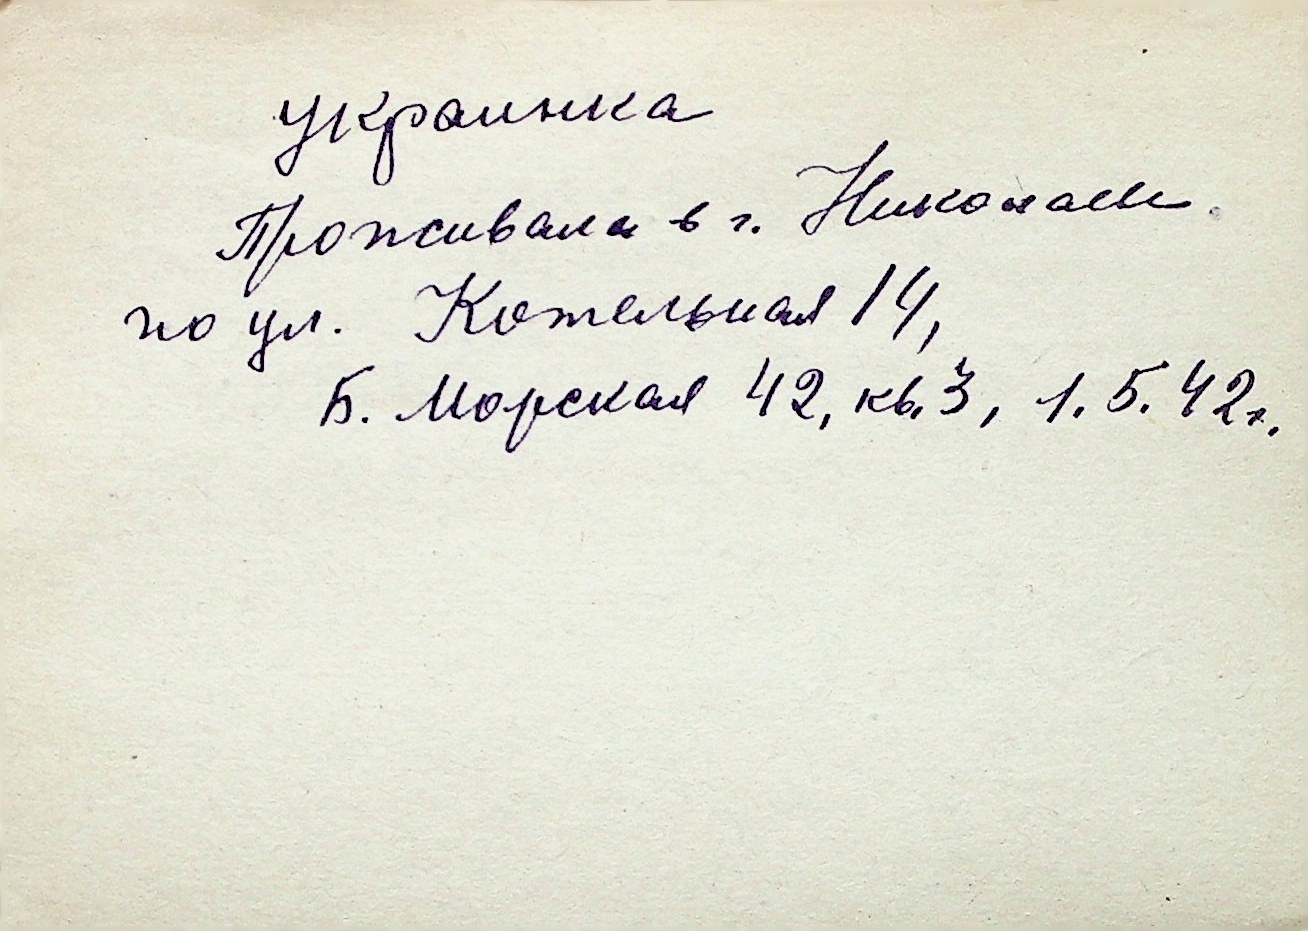 украинка
Проживала в г. Николаеве
по ул. Котельная 14,
Б. Морская 42, кв.3, 1.5.42г.